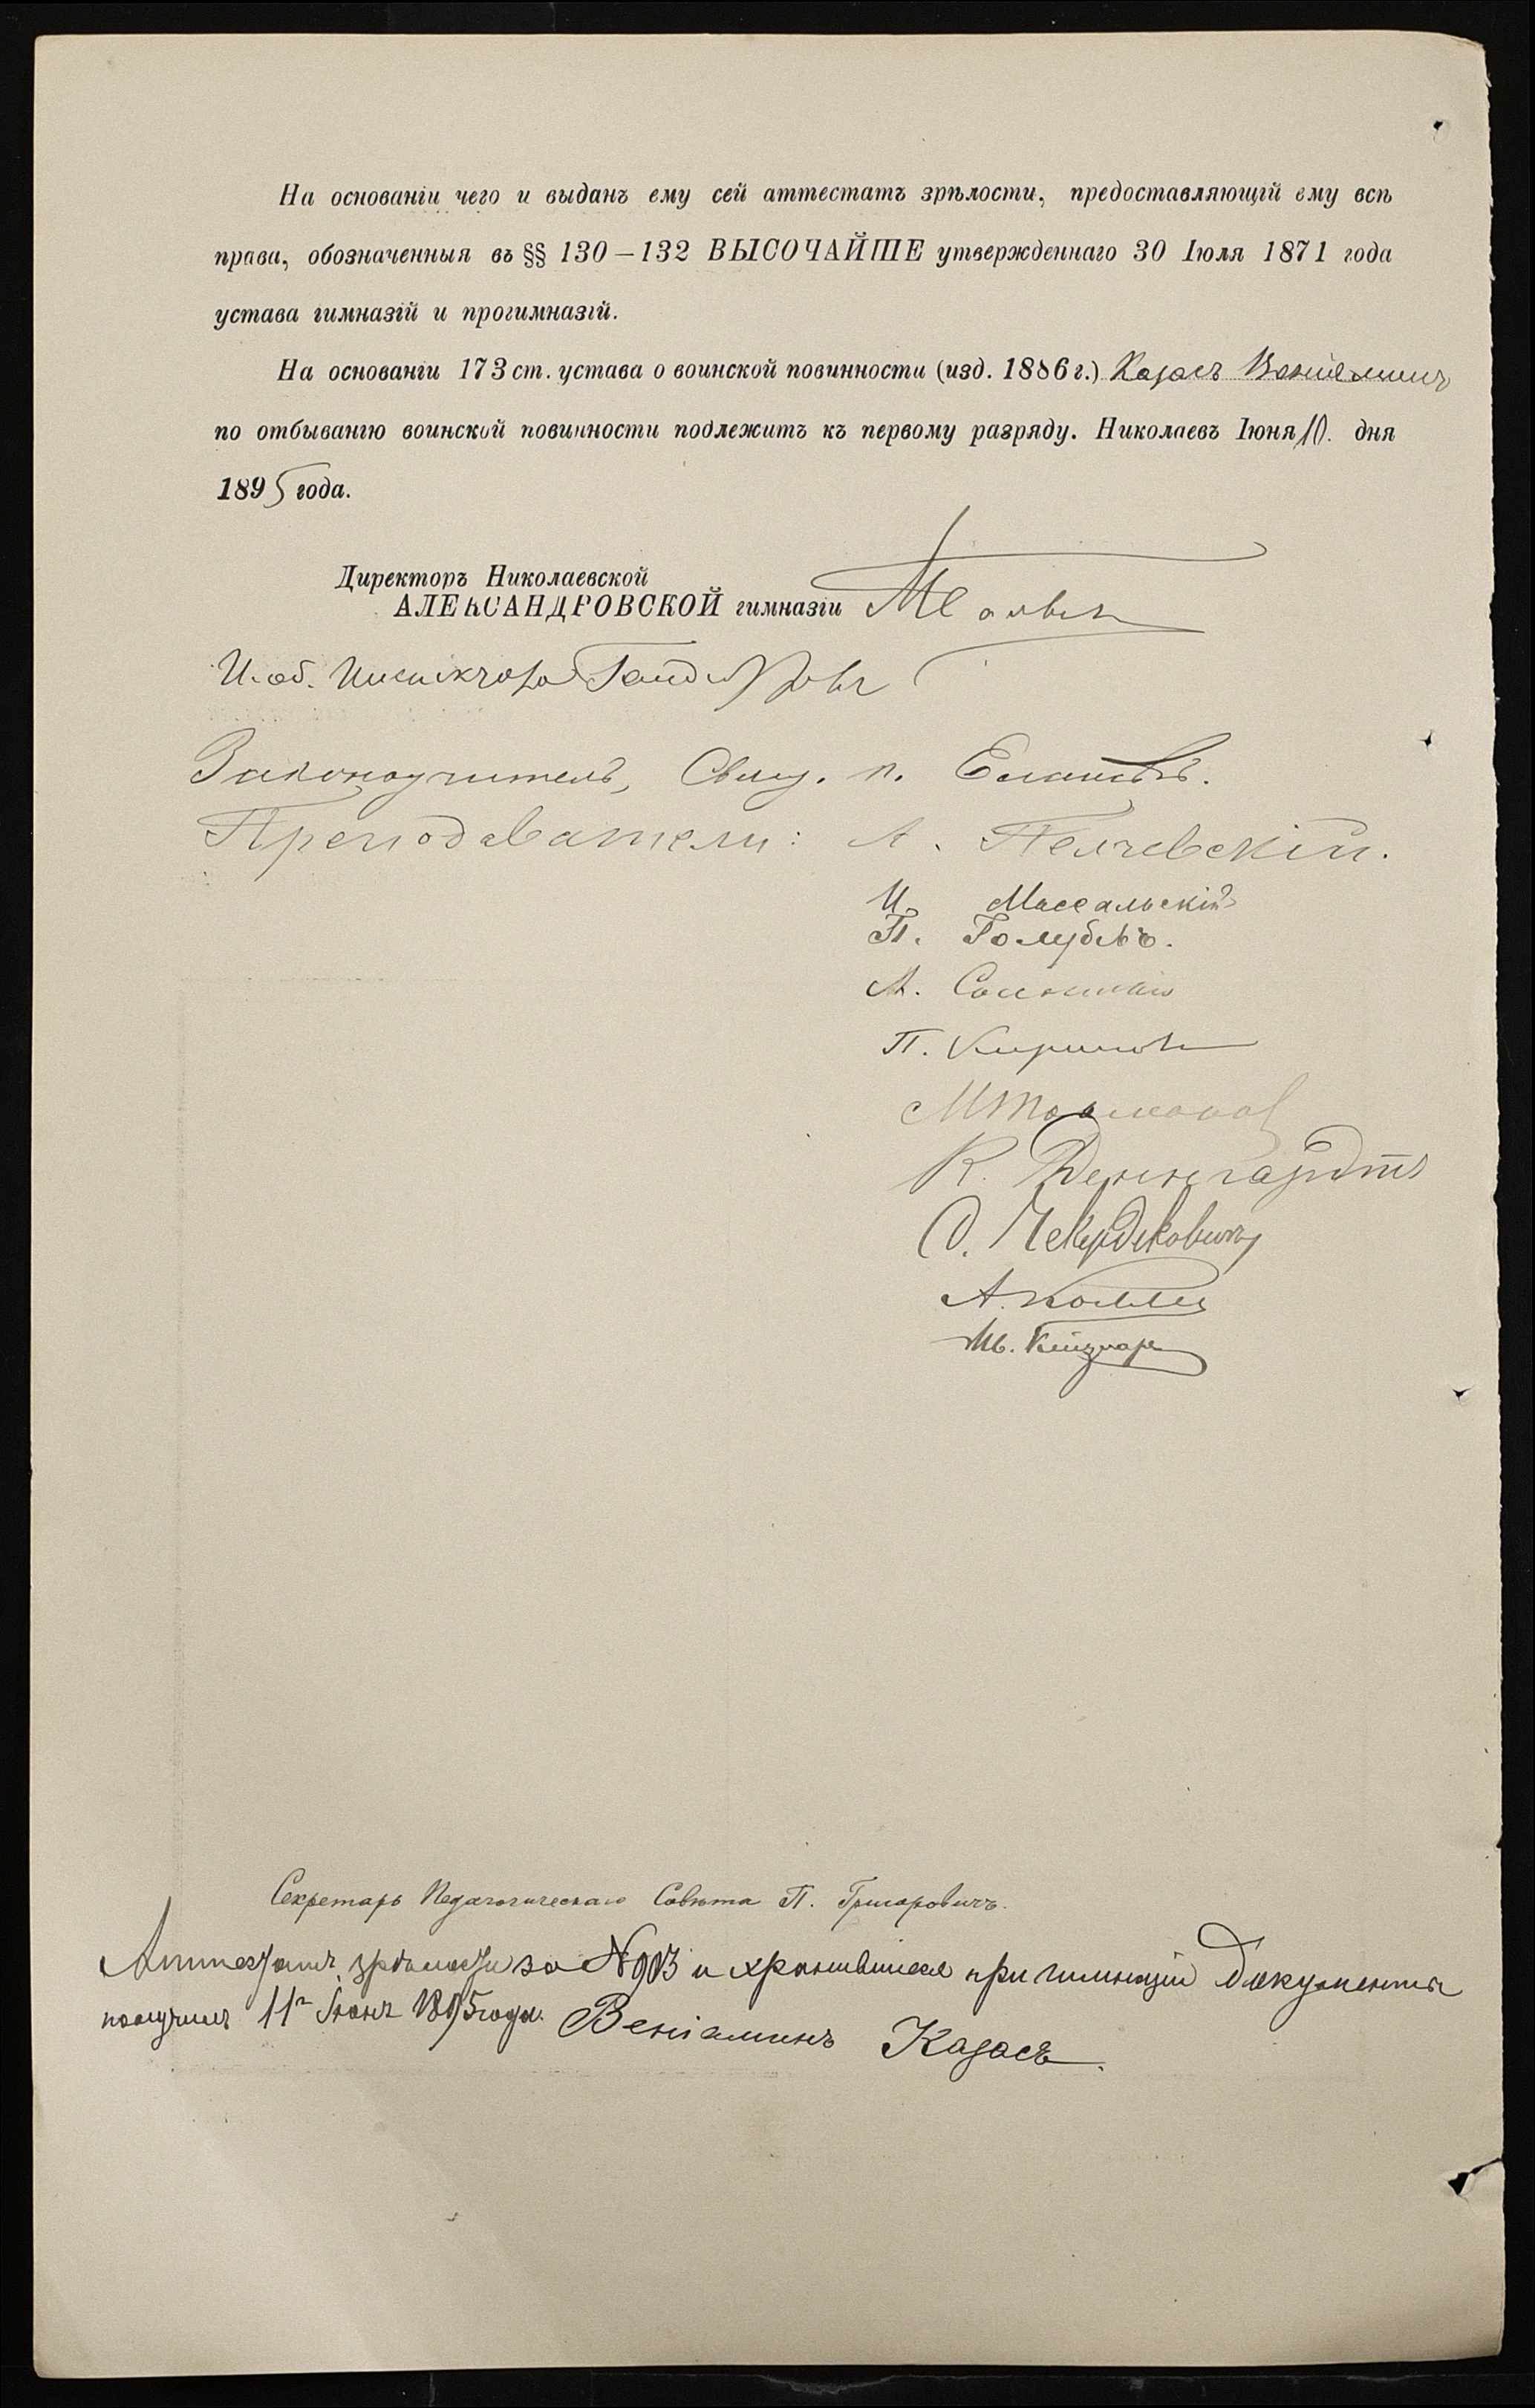 На основаніи чего и выданъ ему сей аттестатъ зрѣлости, предоставляющій ему всѣ
права, обозначенныя въ §§ 130–132 ВЫСОЧАЙШЕ утвержденнаго 30 Іюля 1871 года
устава гимназій и прогимназій.
На основаніи 173 ст. устава о воинской повинности (изд. 1886 г.) Казасъ Веніаминъ
по отбыванію воинской повинности подлежитъ къ первому разряду. Николаевъ Іюня 10. дня
1895 года.
Директоръ Николаевской
АЛЕКСАНДРОВСКОЙ гимназіи
И. об. Инспектора
Законоучитель, Свящ. п.
Преподаватели: А. Пелчевскій.
И. Массальскій
П. Голубевъ.
А.
П. Кирилловъ
К. Денгардтъ
А. Колли
Секретарь Педагогическаго Совѣта П. Григоровичъ.
Аттестатъ зрѣлости за № 903 и хранившіеся при гимназіи документы
получилъ 11го Іюня 1895 года. Веніаминъ Казасъ.